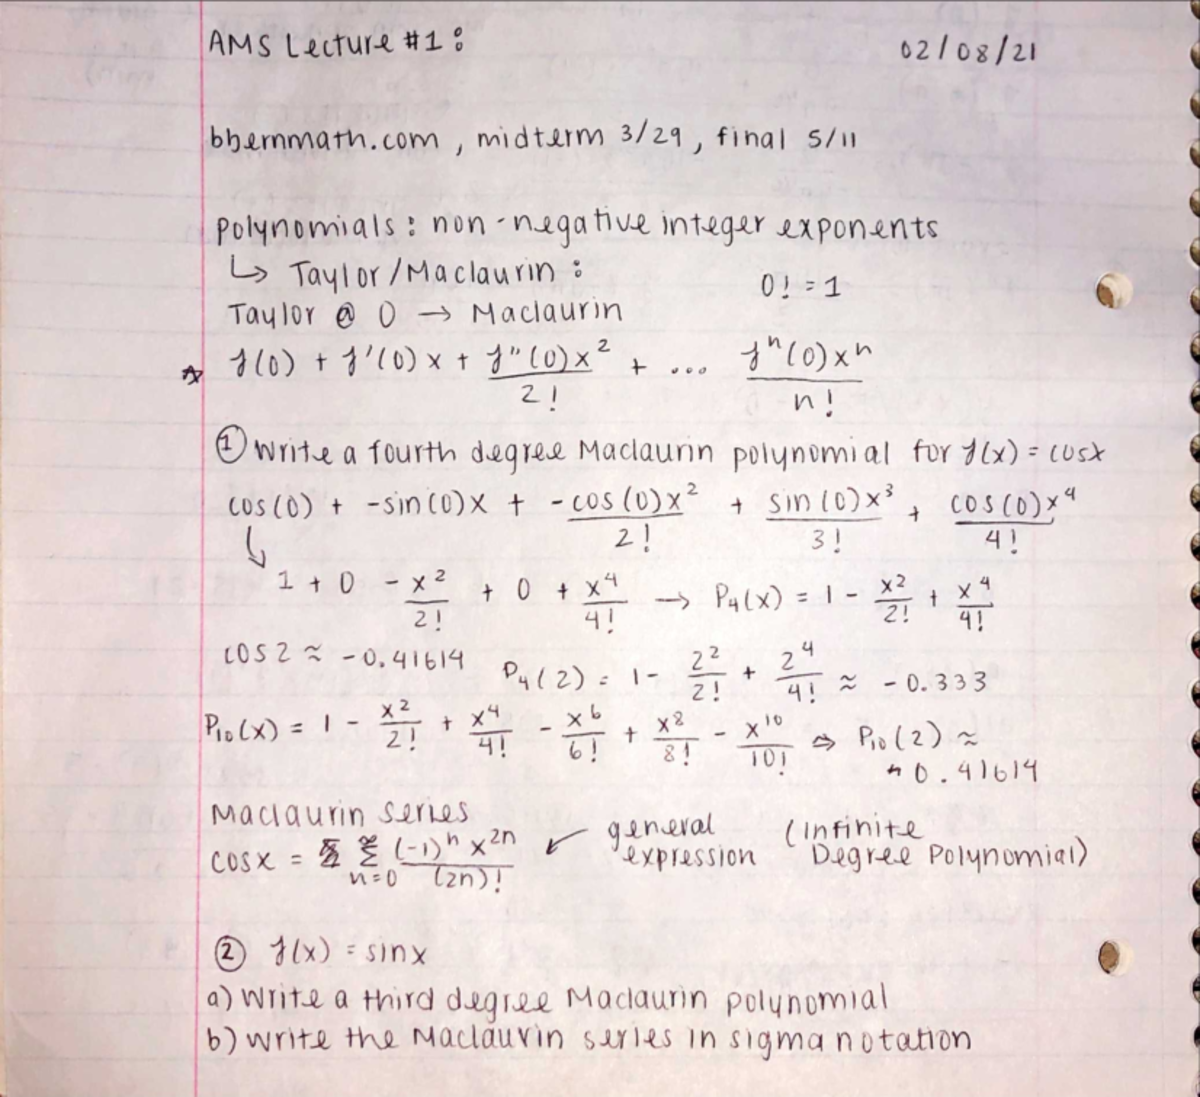 AMS Lecture #1: 02/08/21
bbernmath.com, midterm 3/29, final 5/11
polynomials: non-negative integer exponents
↳ Taylor/Maclaurin: 0! = 1
Taylor @ 0 → Maclaurin
☆ f(0) + f'(0)x + f''(0)x²/2! + ... fⁿ(0)xⁿ/n!
① Write a fourth degree Maclaurin polynomial for f(x) = cosx
cos(0) + -sin(0)x + -cos(0)x²/2! + sin(0)x³/3! + cos(0)x⁴/4!
↳ 1 + 0 - x²/2! + 0 + x⁴/4! → P₄(x) = 1 - x²/2! + x⁴/4!
cos2 ≈ -0.41614 P₄(2) = 1 - 2²/2! + 2⁴/4! ≈ -0.333
P₁₀(x) = 1 - x²/2! + x⁴/4! - x⁶/6! + x⁸/8! - x¹⁰/10! ⇒ P₁₀(2) ≈
-0.41614
Maclaurin series
cosx = ∞Σn=0 (-1)ⁿ x²ⁿ/(2n)! ↙ general expression (Infinite Degree Polynomial)
② f(x) = sinx
a) Write a third degree Maclaurin polynomial
b) Write the Maclaurin series in sigma notation